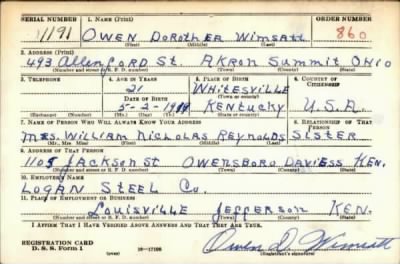 SERIAL NUMBER 1. NAME (Print) ORDER NUMBER
1191 OWEN DOROTHER WIMSATT 860
(First) (Middle) (Last)
2. ADDRESS (Print)
493 Allenford St. AKRON SUMMIT OHIO
(Number and street or R. F. D. number) (Town) (County) (State)
3. TELEPHONE 4. AGE IN YEARS 5. PLACE OF BIRTH 6. COUNTRY OF CITIZENSHIP
21 WHITESVILLE
DATE OF BIRTH (Town or county)
5-2-1919 KENTUCKY U.S.A.
(Exchange) (Number) (Mo.) (Day) (Yr.) (State or country)
7. NAME OF PERSON WHO WILL ALWAYS KNOW YOUR ADDRESS 8. RELATIONSHIP OF THAT PERSON
MRS. WILLIAM NICHOLAS REYNOLDS SISTER
(Mr., Mrs., Miss) (First) (Middle) (Last)
9. ADDRESS OF THAT PERSON
1105 JACKSON ST OWENSBORO DAVIESS KEN.
(Number and street or R. F. D. number) (Town) (County) (State)
10. EMPLOYER'S NAME
LOGAN STEEL Co.
11. PLACE OF EMPLOYMENT OR BUSINESS
LOUISVILLE JEFFERSON KEN.
(Number and street or R. F. D. number) (Town) (County) (State)
I AFFIRM THAT I HAVE VERIFIED ABOVE ANSWERS AND THAT THEY ARE TRUE.
REGISTRATION CARD
D. S. S. Form 1 (over) 16-17105 Owen D. Wimsatt
(Registrant's signature)